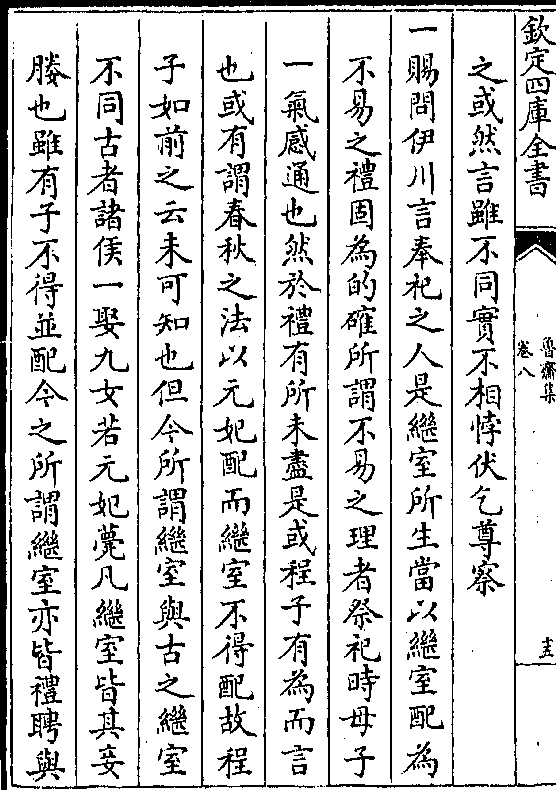 欽定四庫全書
魯齋集
卷八
十五
之或然言雖不同實不相悖伏乞尊察
一賜問伊川言奉祀之人是繼室所生當以繼室配為
不易之禮固為的確所謂不易之理者祭祀時母子
一氣感通也然於禮有所未盡是或程子有為而言
也或有謂春秋之法以元妃配而繼室不得配故程
子如前之云未可知也但今所謂繼室與古之繼室
不同古者諸侯一娶九女若元妃薨凡繼室皆其妾
媵也雖有子不得並配今之所謂繼室亦皆禮聘與